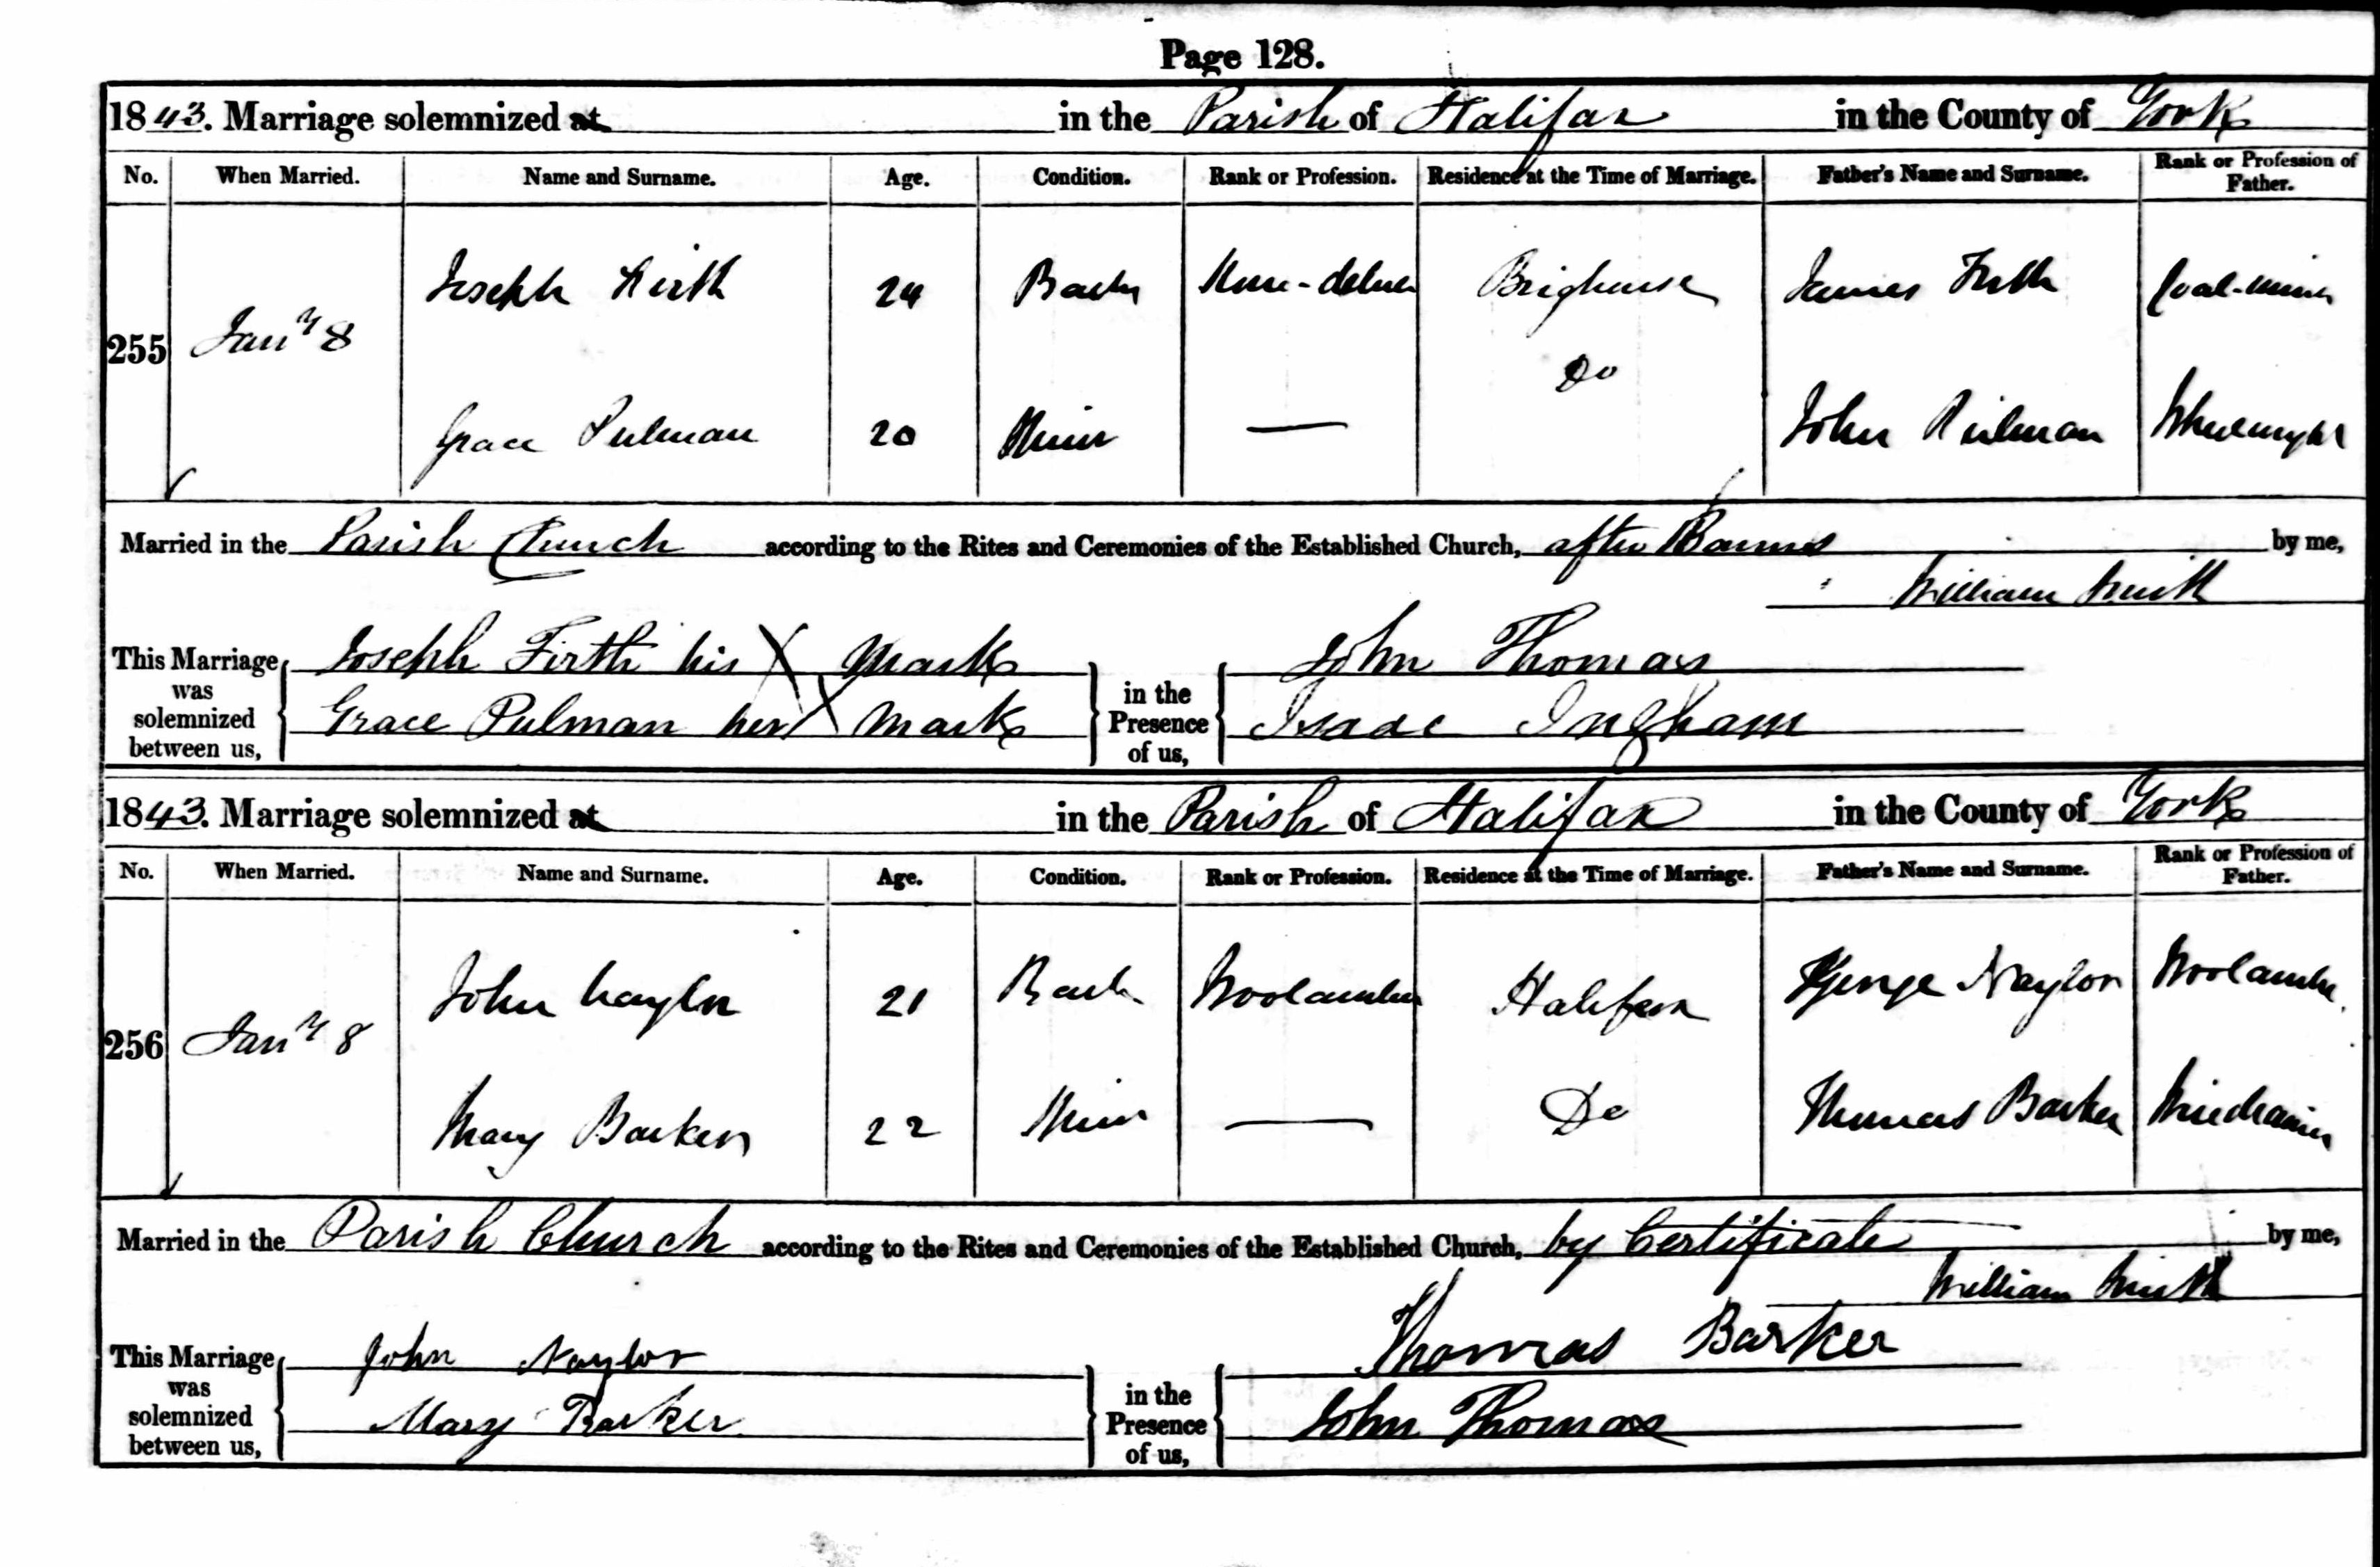 Page 128.
1843. Marriage solemnized at in the Parish of Halifax in the County of York
No. When Married. Name and Surname. Age. Condition. Rank or Profession. Residence at the Time of Marriage. Father's Name and Surname. Rank or Profession of Father.
Joseph Firth 24 Bachr Brighouse James Firth Coal-miner
255 Jany 8
Do
Grace Pulman 20 — John Pulman Wheelwright
Married in the Parish Church according to the Rites and Ceremonies of the Established Church, after Banns by me,
William Smith
This Marriage was solemnized between us, Joseph Firth his X Mark in the Presence of us, John Thomas
Grace Pulman her X Mark Isaac Ingham
1843. Marriage solemnized at in the Parish of Halifax in the County of York
No. When Married. Name and Surname. Age. Condition. Rank or Profession. Residence at the Time of Marriage. Father's Name and Surname. Rank or Profession of Father.
John Naylor 21 Bach Woolcomber Halifax George Naylor Woolcomber
256 Jany 8
Mary Barker 22 — Do Thomas Barker
Married in the Parish Church according to the Rites and Ceremonies of the Established Church, by Certificate by me,
William Smith
This Marriage was solemnized between us, John Naylor in the Presence of us, Thomas Barker
Mary Barker John Thomas